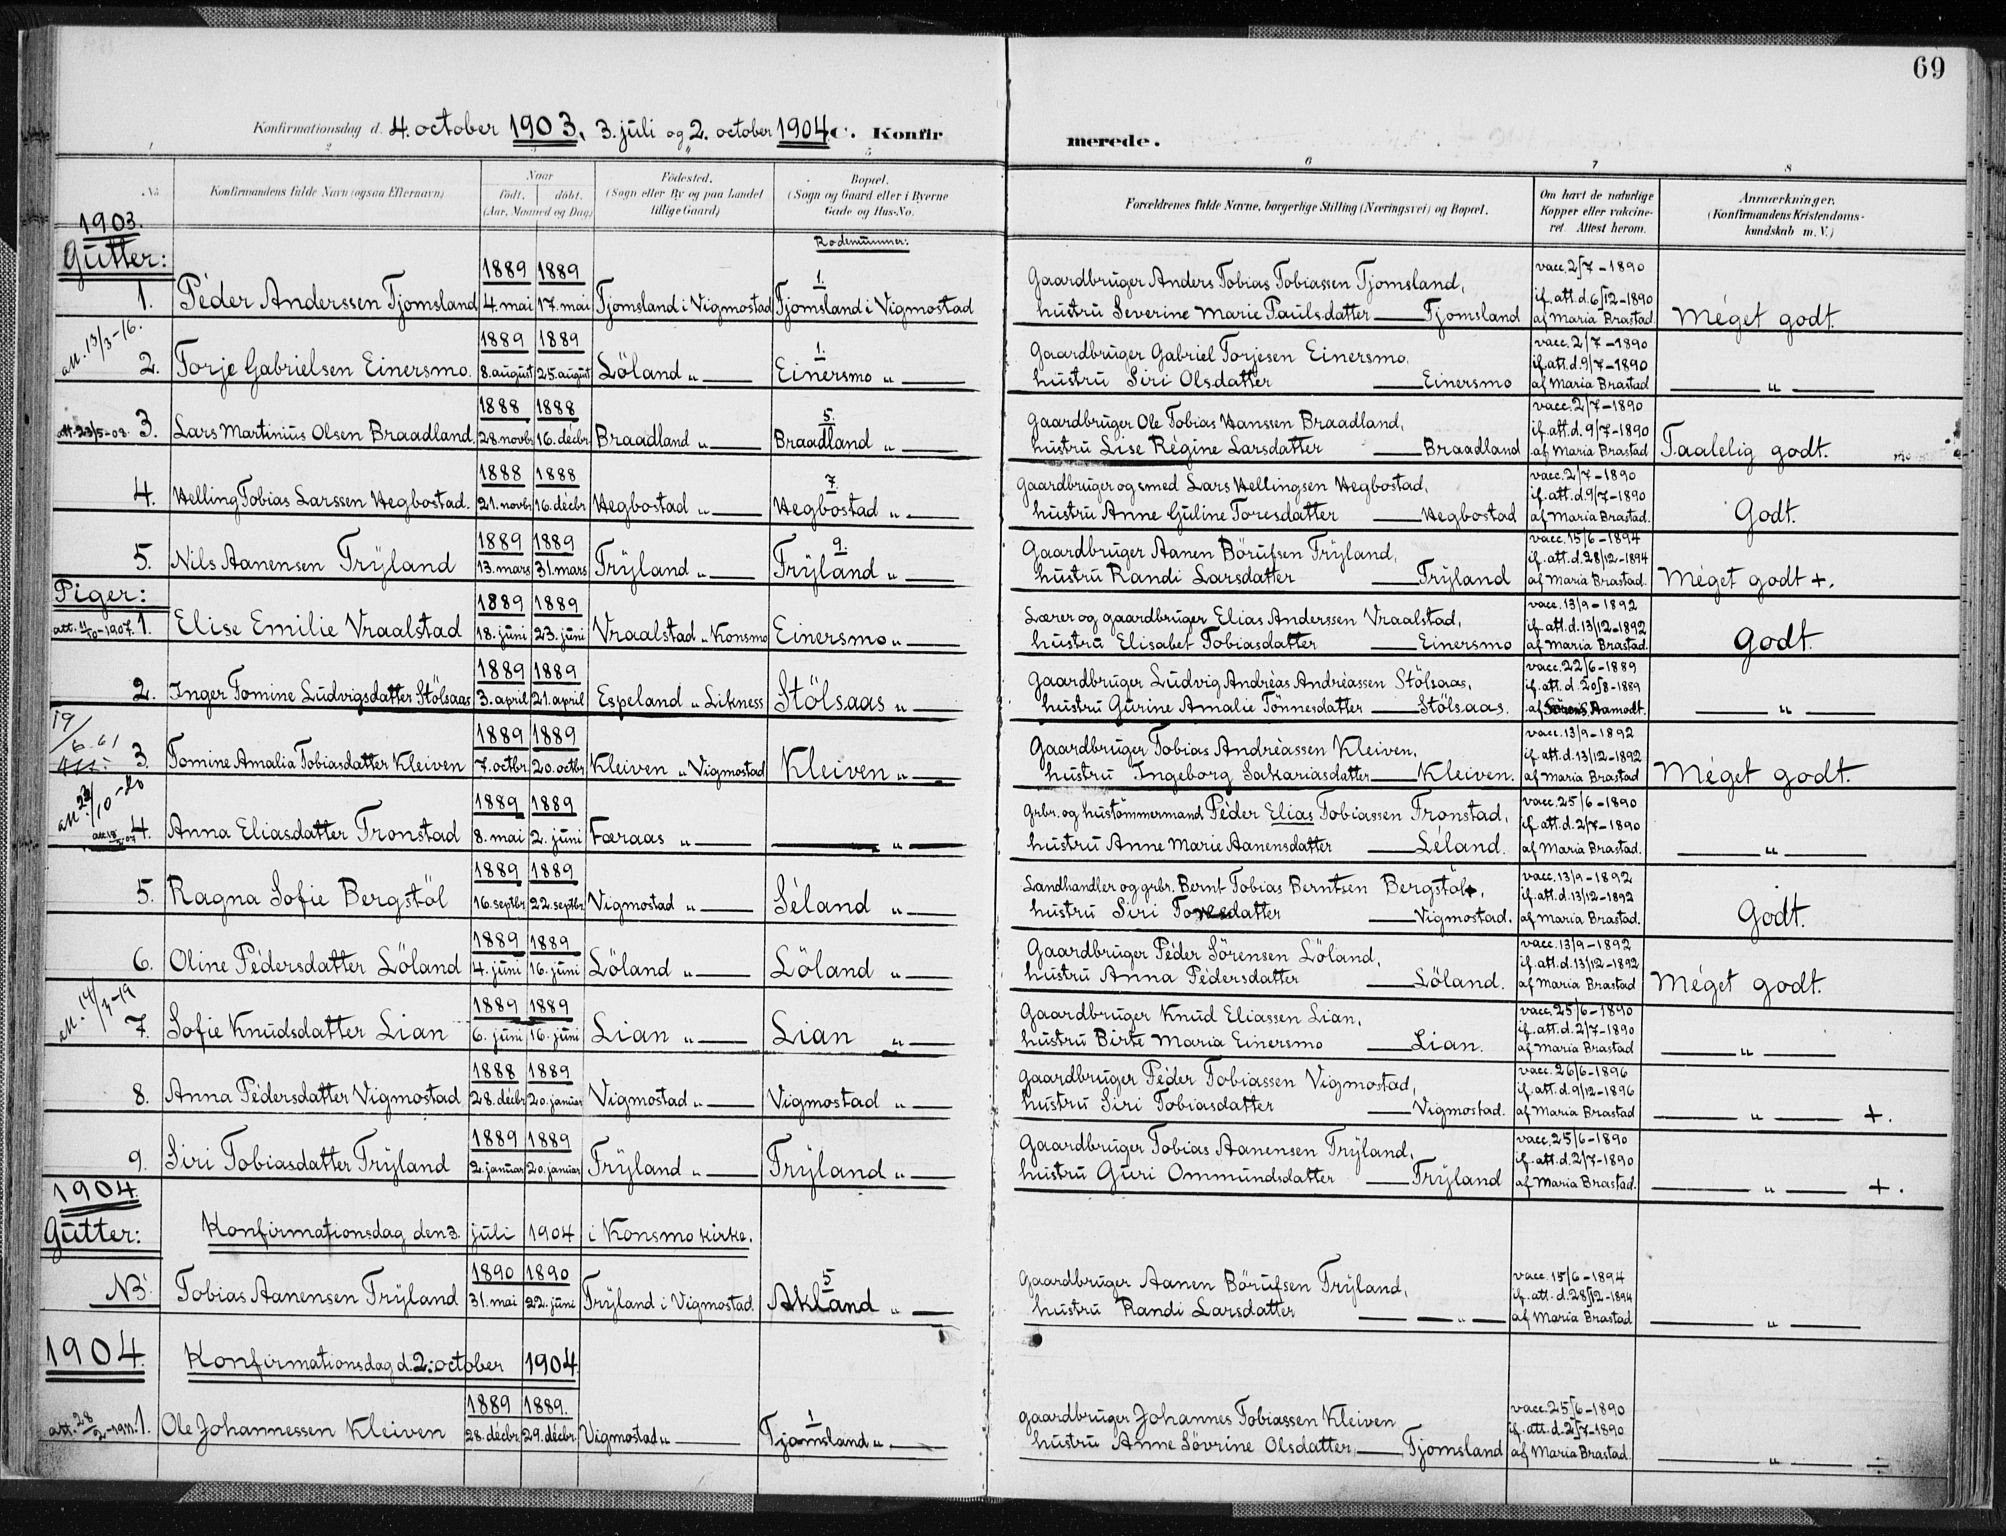 69
Konfirmationsdag d. 4. october 1903, 3. juli og 2. october 1904. C. Konfir merede.
1 2 3 5 6 7 8
No. Konfirmandens fulde Navn (ogsaa Efternavn) Naar født. døbt. (Aar, Maaned og Dag) Fødested. (Sogn eller By og paa Landet tillige Gaard) Bopæl. (Sogn og Gaard eller i Byerne Gade og Hus-No. Forældrenes fulde Navne, borgerlige Stilling (Næringsvei) og Bopæl. Om havt de naturlige Kopper eller vakcineret. Attest herom. Anmærkninger. (Konfirmandens Kristendomskundskab m. V.)
1903.
Gutter:
Rodenummer:
1889 1889 1. Gaardbruger Anders Tobias Tobiassen Tjomsland, vacc. 2/7-1890
1. Péder Anderssen Tjomsland 4. mai 17. mai Tjomsland i Vigmostad Tjomsland i Vigmostad hustru Severine Marie Paulsdatter — Tjomsland if. att. d. 6/12-1890 af Maria Brastad Méget godt.
att. 13/3-16.
1889 1889 1. Gaardbruger Gabriel Torjesen Einersmo, vacc. 2/7-1890
2. Torje Gabrielsen Einersmo. 8. august 25. august Löland „ — Einersmo „ — hustru Siri Olsdatter — Einersmo if. att. d. 9/7-1890 af Maria Brastad — „ —
1888 1888 5. Gaardbruger Ole Tobias Hanssen Braadland, vacc. 2/7-1890
att. 23/5-08. 3. Lars Martinius Olsen Braadland. 28. novbr 16. décbr Braadland „ — Braadland „ — hustru Lise Régine Larsdatter — Braadland if. att. d. 9/7-1890 af Maria Brastad Taalelig godt.
1888 1888 7. Gaardbruger og smed Lars Hellingsen Hegbostad, vacc. 2/7-1890
4. Helling Tobias Larssen Hegbostad. 21. novbr 16. décbr Hegbostad „ — Hegbostad „ — hustru Anne Guline Toresdatter — Hegbostad if. att. d. 9/7-1890 af Maria Brastad. Godt.
1889 1889 9. Gaardbruger Aanen Börufsen Trÿland, vacc. 15/6-1894
5. Nils Aanensen Trÿland 13. mars 31. mars Trÿland „ — Trÿland „ — hustru Randi Larsdatter — Trÿland if. att. d. 28/12-1894 af Maria Brastad. Méget godt +.
Piger:
1889 1889 Lærer og gaardbruger Elias Anderssen Vraalstad, vacc. 13/9-1892
att. 11/10-1907. 1. Elise Emilie Vraalstad 18. juni 23. juni Vraalstad „ Konsmo Einersmo „ — hustru Elisabet Tobiasdatter — Einersmo if. att. d. 13/12-1892 af Maria Brastad. Godt.
1889 1889 Gaardbruger Ludvig Andréas Andréassen Stölsaas, vacc. 22/6-1889
2. Inger Tomine Ludvigsdatter Stölsaas 3. april 21. april Espeland „ Likness Stölsaas „ — hustru Gurine Amalie Tönnesdatter — Stölsaas. if. att. d. 20/8-1889 af Sörens Aamodt. — „ —
19/6.61
1889 1889 Gaardbruger Tobias Andréassen Kleiven. vacc. 13/9-1892
3. Tomine Amalia Tobiasdatter Kleiven 7. octbr 20. octbr Kleiven „ Vigmostad Kleiven „ — hustru Ingeborg Sakariasdatter — Kleiven. if. att. d. 13/12-1892 af Maria Brastad Méget godt.
att. 23/10-20
1889 1889 Grbr. og hustömmermand Péder Elias Tobiassen Tronstad, vacc. 25/6-1890
4. Anna Eliasdatter Tronstad 8. mai 2. juni Færaas „ — — „ — hustru Anne Marie Aanensdatter — Léland. if. att. d. 2/7-1890 af Maria Brastad. — „ —
1889 1889 Landhandler og grbr. Bernt Tobias Berntsen Bergstöl, vacc. 13/9-1892
5. Ragna Sofie Bergstöl 16. septbr 22. septbr Vigmostad „ — Séland „ — hustru Siri Toresdatter — Vigmostad. if. att. d. 13/12-1892 af Maria Brastad. Godt.
1889 1889 Gaardbruger Péder Sörensen Löland, vacc. 13/9-1892
6. Oline Pédersdatter Löland 4. juni 16. juni Löland „ — Löland „ — hustru Anna Pédersdatter — Löland. if. att. d. 13/12-1892 af Maria Brastad Méget godt.
att. 14/3-19
1889 1889 Gaardbruger Knud Eliassen Lian, vacc. 25/6-1890
7. Sofie Knudsdatter Lian 6. juni 16. juni Lian „ — Lian „ — hustru Birte Maria Einersmo — Lian. if. att. d. 2/7-1890 af Maria Brastad — „ —
1888 1889 Gaardbruger Péder Tobiassen Vigmostad, vacc. 26/6-1896
8. Anna Pédersdatter Vigmostad 28. décbr 20. januar Vigmostad „ — Vigmostad „ — hustru Siri Tobiasdatter — Vigmostad. if. att. d. 9/12-1896 af Maria Brastad — „ — +.
1889 1889 Gaardbruger Tobias Aanensen Trÿland, vacc. 25/6-1890
9. Siri Tobiasdatter Trÿland 2. januar 20. januar Trÿland „ — Trÿland „ — hustru Guri Ommundsdatter — Trÿland if. att. d. 2/7-1890 af Maria Brastad. — „ — +.
1904.
Gutter: Konfirmationsdag den 3. juli 1904 i Konsmo kirke.
1890 1890 5 Gaardbruger Aanen Börufsen Trÿland, vacc. 15/6-1894
NB. Tobias Aanensen Trÿland 31. mai 22. juni Trÿland i Vigmostad. Akland „ — hustru Randi Larsdatter — — „ — if. att. d. 28/12-1894 af Maria Brastad — „ —
1904. Konfirmationsdag d. 2. october 1904.
1889 1889. 1 gaardbruger Johannes Tobiassen Kleiven vacc. 25/6-1890
att. 28/2-1911. 1. Ole Johannessen Kleiven 28. décbr. 29. décbr. Vigmostad „ — Tjomsland „ — hustru Anne Sövrine Olsdatter, — Tjomsland if. att. d. 2/7-1890 af Maria Brastad. — „ — ÷